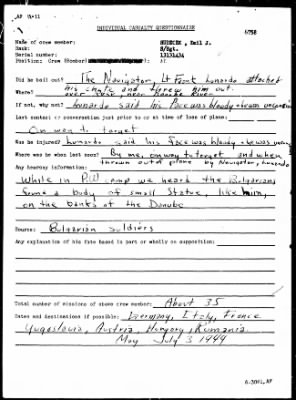 AF (A-11)
6758
INDIVIDUAL CASUALTY QUESTIONNAIRE
Name of crew member: , Emil J.
Rank: S/Sgt.
Serial number: 13131434
Position: Crew (Bomber)
Did he bail out? The Navigator, Lt Frank Lunardo attached
his chute and threw him out.
Where? over near
If not, why not? Lunardo said his face was bloody + he was
Last contact or conversation just prior to or at time of loss of plane:
On way to target
Was he injured? Lunardo said his face was bloody + he was
Where was he when last seen? By me, on way to target and when
thrown out of plane by Navigator, Lunardo
Any hearsay information:
While in P.W. camp we heard the Bulgarians
found a body of small stature, like him,
on the banks of the Danube
Source: Bulgarian soldiers
Any explanation of his fate based in part or wholly on supposition:
Total number of missions of above crew member: About 35
Dates and destinations if possible: Germany, Italy, France
Yugoslavia, Austria, Hungary, Rumania
May July 3 1944
6-3861,AF